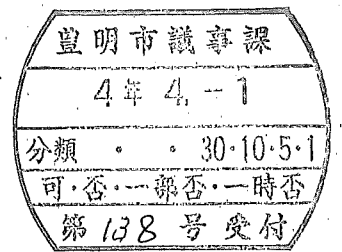 豊明市議事課
4年 4.-1
分類 ・ ・ 30・10・5・1
可・否・一部否・一時否
第 138 号 受付